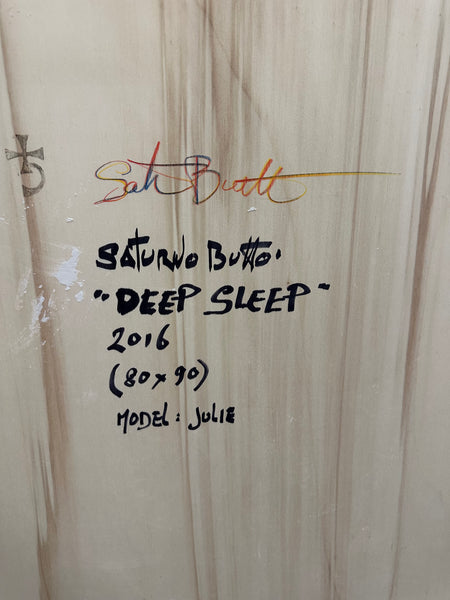 Sat Butt
SATURNO BUTTO'
"DEEP SLEEP"
2016
(80x90)
MODEL: JULIE